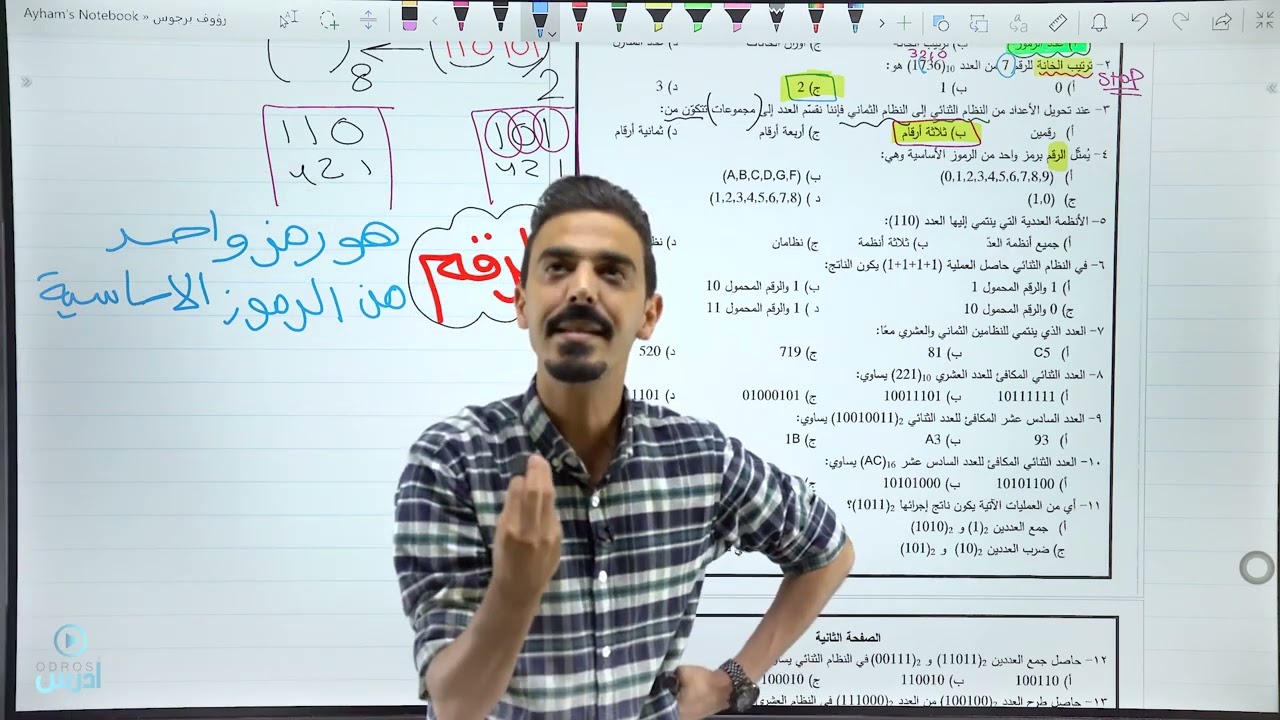 Ayham's Notebook » رؤوف برجوس
( ) ← (110101)
8 2
110 101
421 421
هو رمز واحد
من الرموز الأساسية
الرقم
أ) عدد الرموز ب) ترتيب الخانة ج) أوزان الخانات د) عدد المنازل
3210
٢- ترتيب الخانة للرقم 7 من العدد (1736)10 هو:
STOP
أ) 0 ب) 1 ج) 2 د) 3
٣- عند تحويل الأعداد من النظام الثنائي إلى النظام الثماني فإننا نقسّم العدد إلى (مجموعات) تتكوّن من:
أ) رقمين ب) ثلاثة أرقام ج) أربعة أرقام د) ثمانية أرقام
٤- يُمثَّل الرقم برمز واحد من الرموز الأساسية وهي:
أ) (0,1,2,3,4,5,6,7,8,9) ب) (A,B,C,D,G,F)
ج) (1,0) د) (1,2,3,4,5,6,7,8)
٥- الأنظمة العددية التي ينتمي إليها العدد (110):
أ) جميع أنظمة العدّ ب) ثلاثة أنظمة ج) نظامان د)
٦- في النظام الثنائي حاصل العملية (1+1+1+1) يكون الناتج:
أ) 1 والرقم المحمول 1 ب) 1 والرقم المحمول 10
ج) 0 والرقم المحمول 10 د) 1 والرقم المحمول 11
٧- العدد الذي ينتمي للنظامين الثماني والعشري معًا:
أ) C5 ب) 81 ج) 719 د) 520
٨- العدد الثنائي المكافئ للعدد العشري (221)10 يساوي:
أ) 10111111 ب) 10011101 ج) 01000101 د)
٩- العدد السادس عشر المكافئ للعدد الثنائي (10010011)2 يساوي:
أ) 93 ب) A3 ج) 1B
١٠- العدد الثنائي المكافئ للعدد السادس عشر (AC)16 يساوي:
أ) 10101100 ب) 10101000 ج)
١١- أي من العمليات الآتية يكون ناتج إجرائها (1011)2؟
أ) جمع العددين (1)2 و (1010)2
ج) ضرب العددين (10)2 و (101)2
الصفحة الثانية
١٢- حاصل جمع العددين (11011)2 و (00111)2 في النظام الثنائي
أ) 100110 ب) 110010 ج) 100010
١٣- حاصل طرح العدد (100100)2 من العدد (111000)2 في النظام العشري
ODROS
أدرس